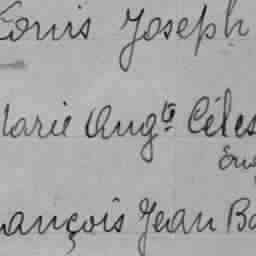 Louis Joseph
Marie Aug^te Céles
François Jean Ba